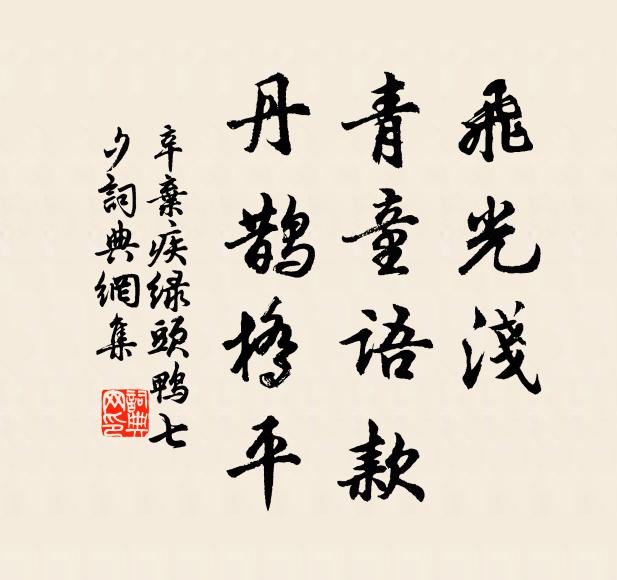 飛光淺
青童語款
丹鵲橋平
辛棄疾綠頭鴨七
夕詞典網集
詞典
网印